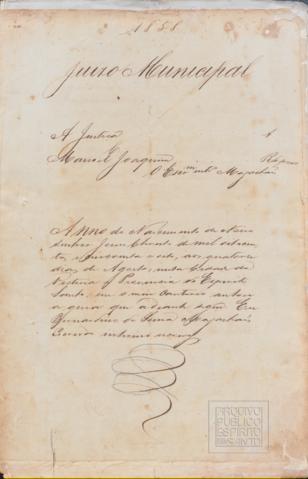 1858
Juizo Municipal
A Justiça A
Manoel Joaquim Réo preso
O Escr.m int.º Magalhães
Anno do Nascimento de Nosso
Senhor Jesus Christo de mil oitocen
tos e cincoenta e oito, aos quatorze
dias de Agosto, nesta Cidade da
Victoria Provincia do Espirito
Santo, em o meu Cartorio autuei
a que adiante segue Eu
de Magalhães
Escrivão interino escrevi
ARQUIVO
PUBLICO
ESPIRITO
SANTO